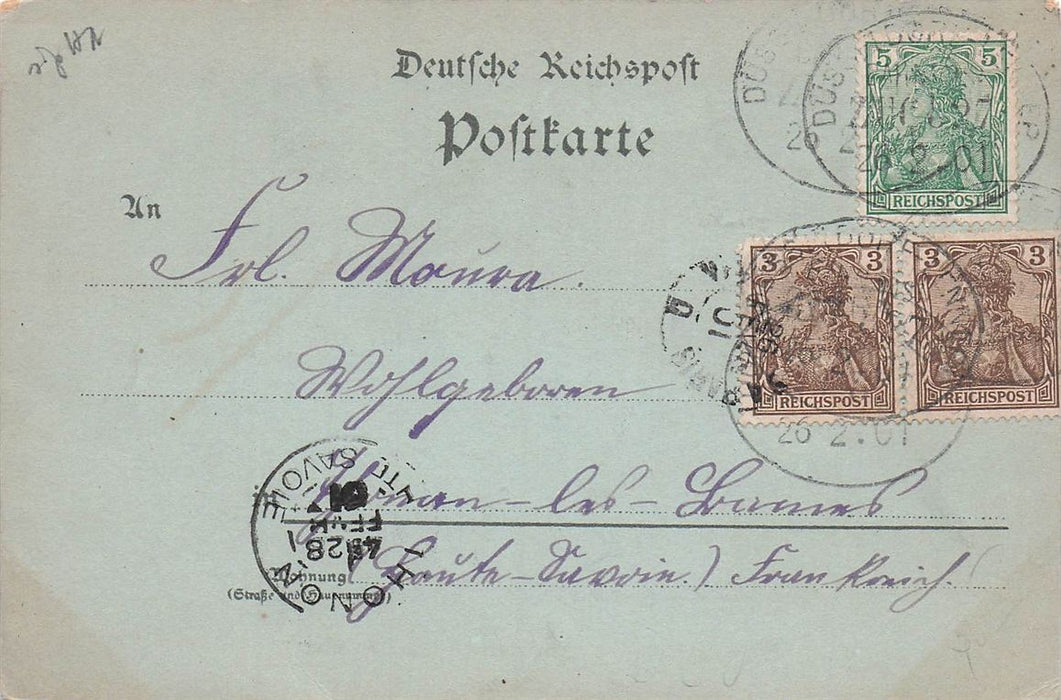 Deutsche Reichspost
Postkarte
An
Frl. Moura.
Wohlgeboren
in Thonon-les-Baines
Wohnung (Haute-Savoie.) Frankreich.
(Straße und Hausnummer)
5 5
REICHSPOST
3 3
REICHSPOST
3
REICHSPOST
ZUG
26 2.01
26 2.01
THONON
HTE SAVOIE
28
01